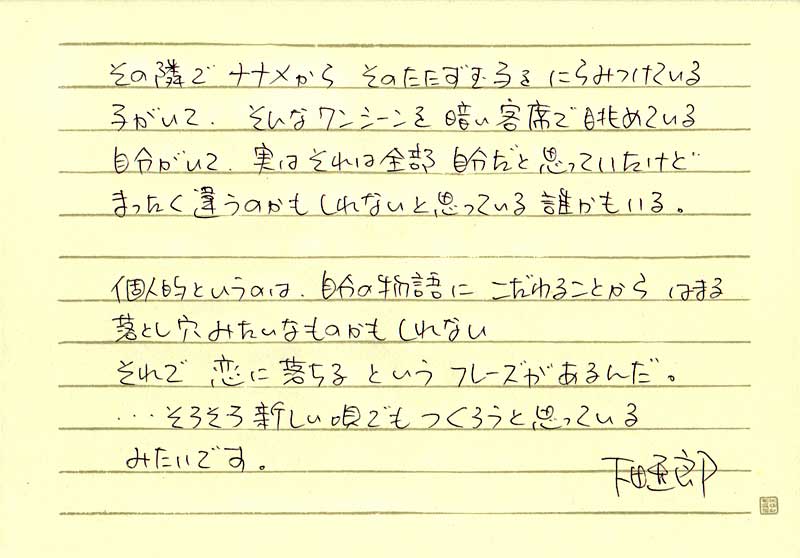 その隣で ナナメから そのたたずむ子を にらみつけている
子がいて、そんなワンシーンを 暗い客席で眺めている
自分がいて、実はそれは全部 自分だと思っていたけど
まったく違うのかもしれないと思っている 誰かもいる。
個人的というのは、自分の物語に こだわることから はまる
落とし穴みたいなものかもしれない
それで 恋に落ちる という フレーズがあるんだ。
...そろそろ新しい唄でもつくろうと思っている
みたいです。
下田逸郎